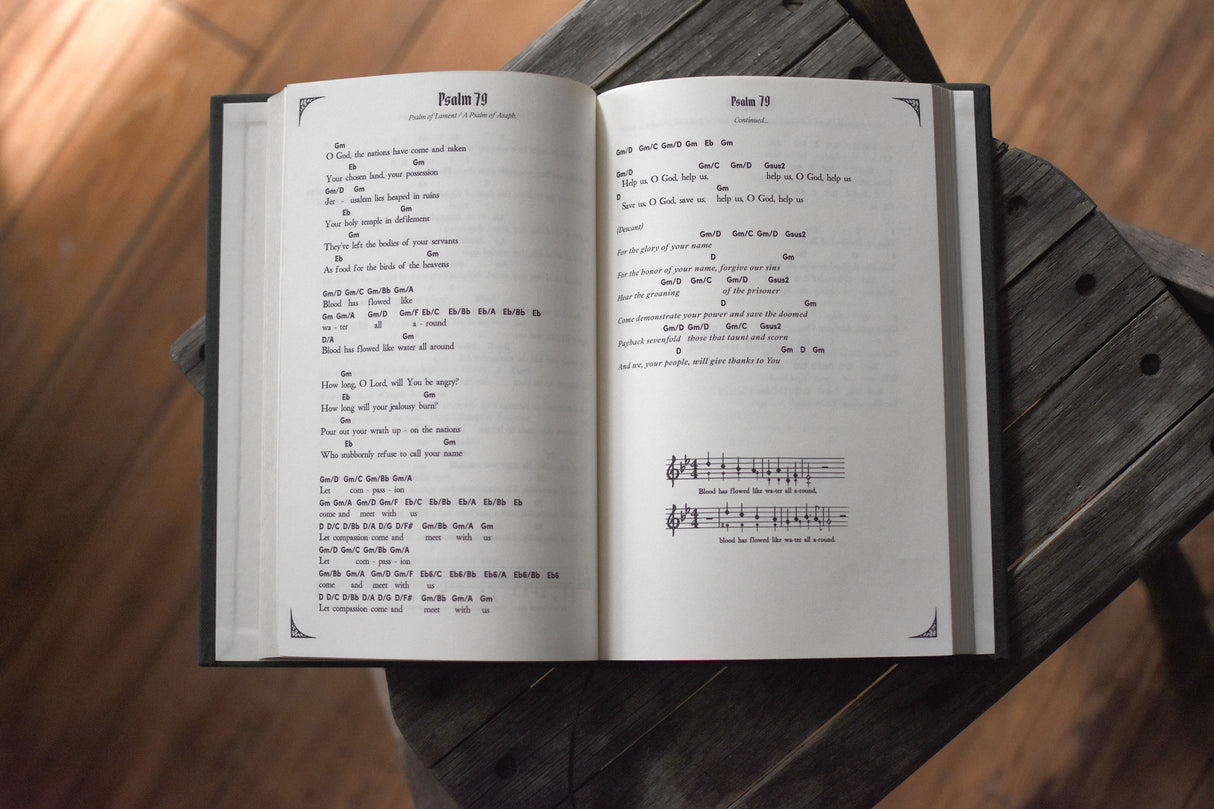 Psalm 79
Psalm of Lament / A Psalm of Asaph.
Gm
O God, the nations have come and taken
Eb Gm
Your chosen land, your possession
Gm/D Gm
Jer - usalem lies heaped in ruins
Eb Gm
Your holy temple in defilement
Gm
They've left the bodies of your servants
Eb Gm
As food for the birds of the heavens
Gm/D Gm/C Gm/Bb Gm/A
Blood has flowed like
Gm Gm/A Gm/D Gm/F Eb/C Eb/Bb Eb/A Eb/Bb Eb
wa - ter all a - round
D/A Gm
Blood has flowed like water all around
Gm
How long, O Lord, will You be angry?
Eb Gm
How long will your jealousy burn?
Gm
Pour out your wrath up - on the nations
Eb Gm
Who stubbornly refuse to call your name
Gm/D Gm/C Gm/Bb Gm/A
Let com - pass - ion
Gm Gm/A Gm/D Gm/F Eb/C Eb/Bb Eb/A Eb/Bb Eb
come and meet with us
D D/C D/Bb D/A D/G D/F# Gm/Bb Gm/A Gm
Let compassion come and meet with us
Gm/D Gm/C Gm/Bb Gm/A
Let com - pass - ion
Gm/Bb Gm/A Gm/D Gm/F Eb6/C Eb6/Bb Eb6/A Eb6/Bb Eb6
come and meet with us
D D/C D/Bb D/A D/G D/F# Gm/Bb Gm/A Gm
Let compassion come and meet with us
Psalm 79
Continued...
Gm/D Gm/C Gm/D Gm Eb Gm
Gm/D Gm/C Gm/D Gsus2
Help us, O God, help us, help us, O God, help us
D Gm
Save us, O God, save us, help us, O God, help us
(Descant)
Gm/D Gm/C Gm/D Gsus2
For the glory of your name
D Gm
For the honor of your name, forgive our sins
Gm/D Gm/C Gm/D Gsus2
Hear the groaning of the prisoner
D Gm
Come demonstrate your power and save the doomed
Gm/D Gm/D Gm/C Gsus2
Payback sevenfold those that taunt and scorn
D Gm D Gm
And we, your people, will give thanks to You
4
4
Blood has flowed like wa-ter all a-round,
4
4
blood has flowed like wa-ter all a-round.